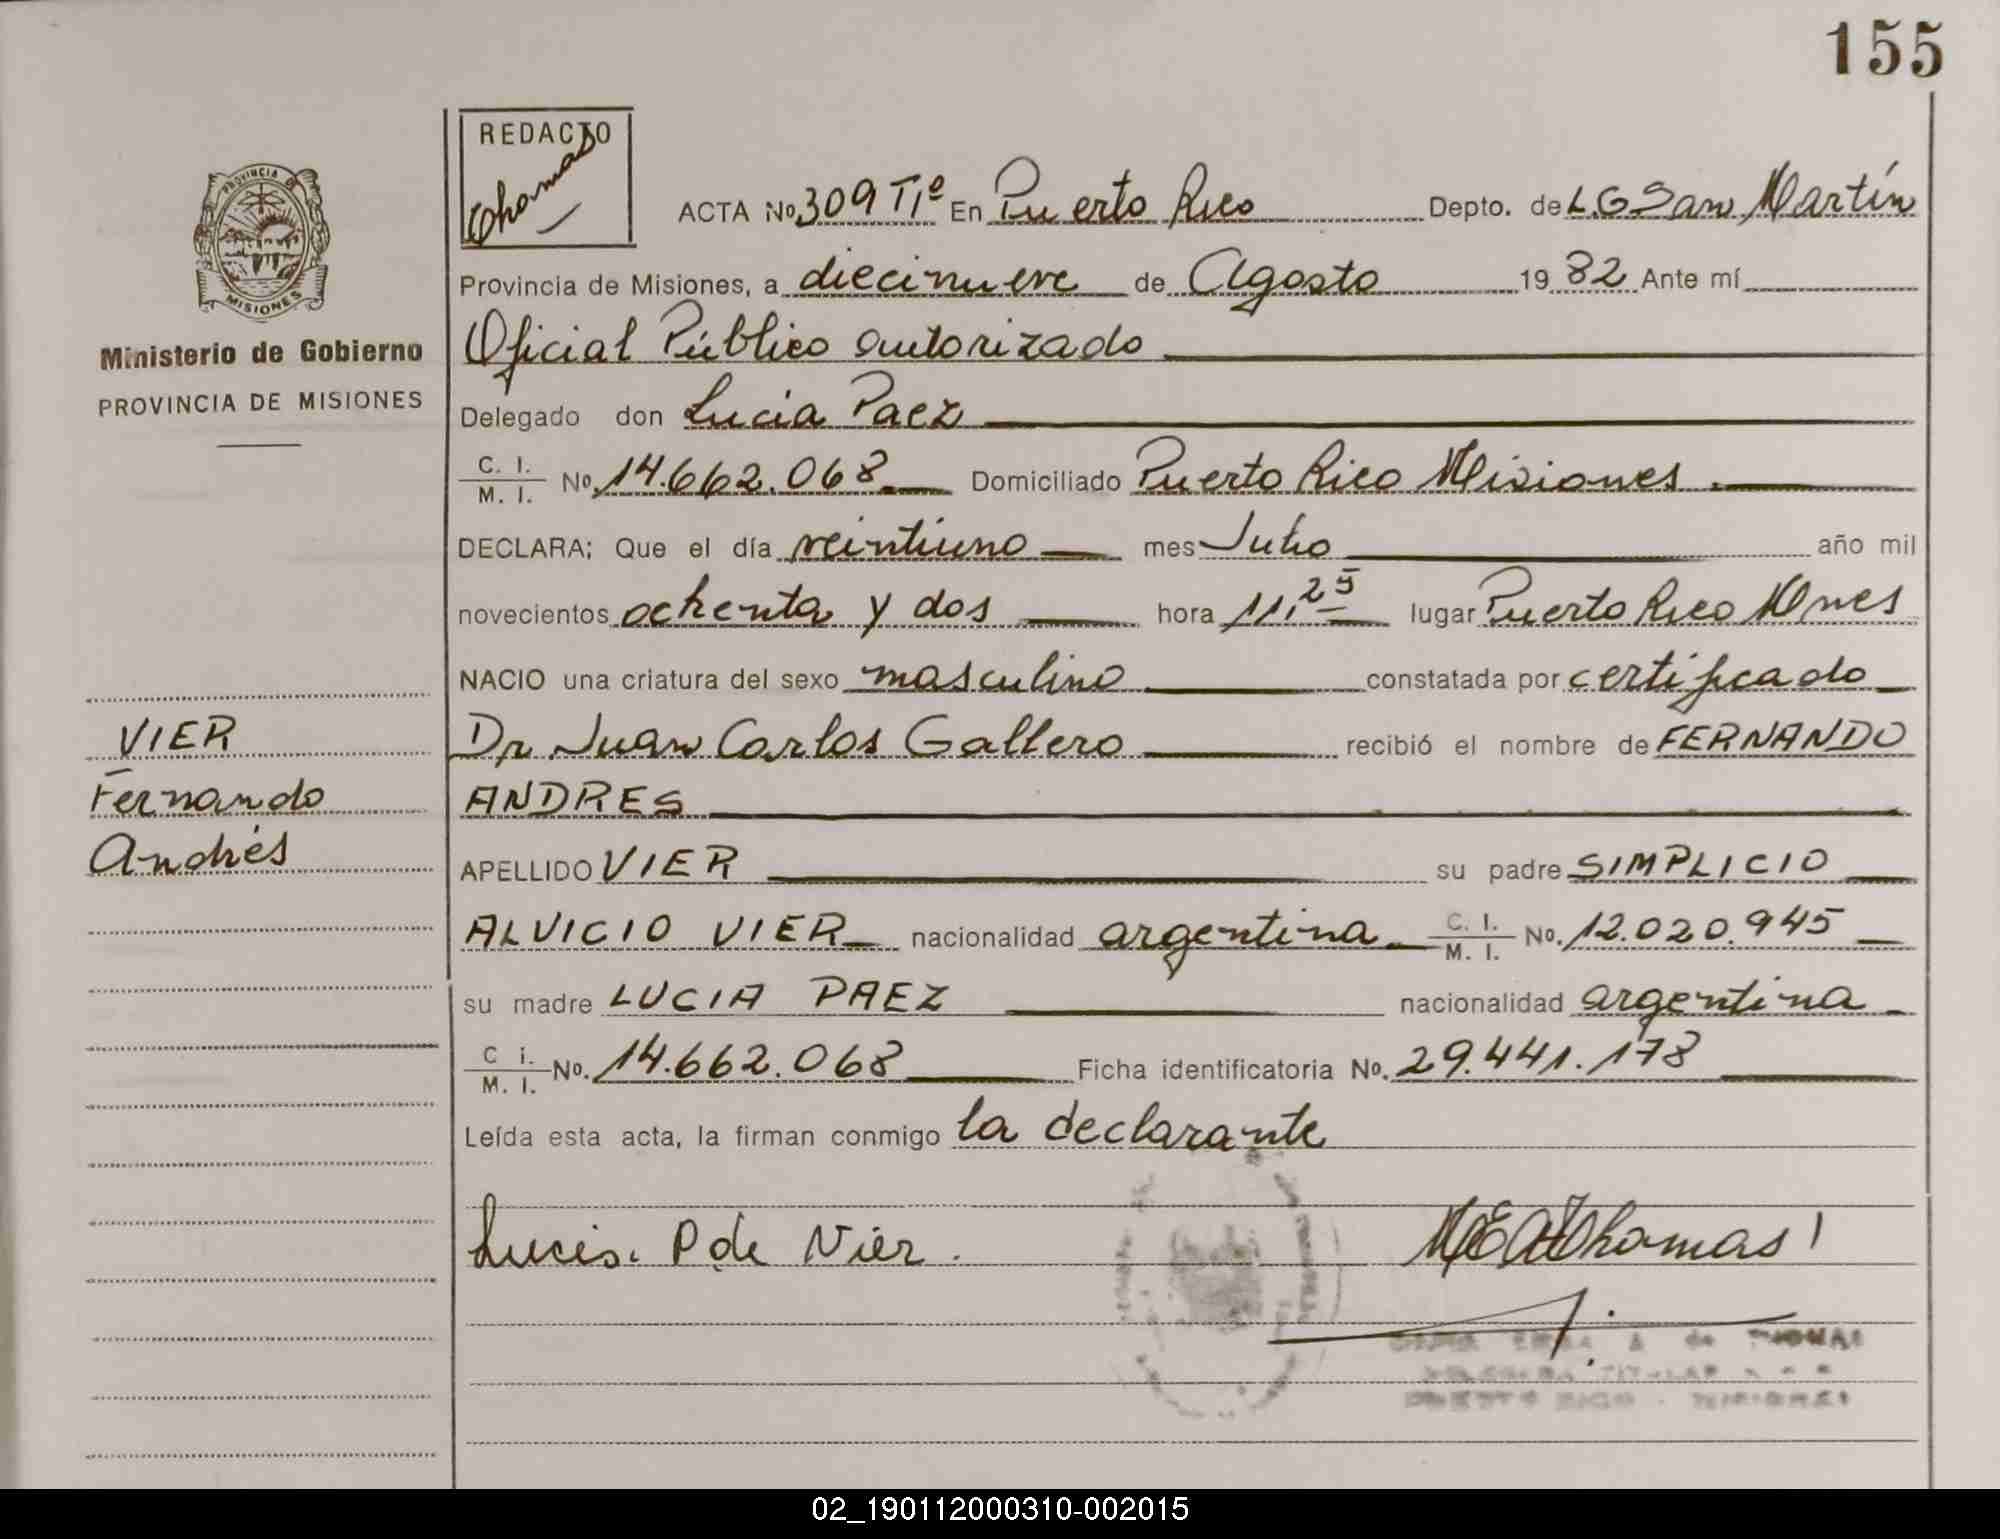 155
REDACTO
Thomas
PROVINCIA DE
MISIONES
Ministerio de Gobierno
PROVINCIA DE MISIONES
ACTA Nº 309 Tº En Puerto Rico Depto. de L.G San Martín
Provincia de Misiones, a diecinueve de Agosto 1982 Ante mí
Oficial Público autorizado
Delegado don Lucia Paez
C. I. / M. I. Nº 14.662.068 Domiciliado Puerto Rico Misiones
DECLARA: Que el día veintiuno mes Julio año mil
novecientos ochenta y dos hora 11,25 lugar Puerto Rico Mnes
NACIO una criatura del sexo masculino constatada por certificado
Dr. Juan Carlos Gallero recibió el nombre de FERNANDO
ANDRES
VIER
Fernando
Andrés
APELLIDO VIER su padre SIMPLICIO
ALVICIO VIER nacionalidad argentina C. I. / M. I. Nº. 12.020.945
su madre LUCIA PAEZ nacionalidad argentina
C i. / M. I. Nº. 14.662.068 Ficha identificatoria Nº. 29.441.178
Leída esta acta, la firman conmigo la declarante
Lucia. P de Vier.
Thomas
de THOMAS
TITULAR
PUERTO RICO - MISIONES
02_190112000310-002015